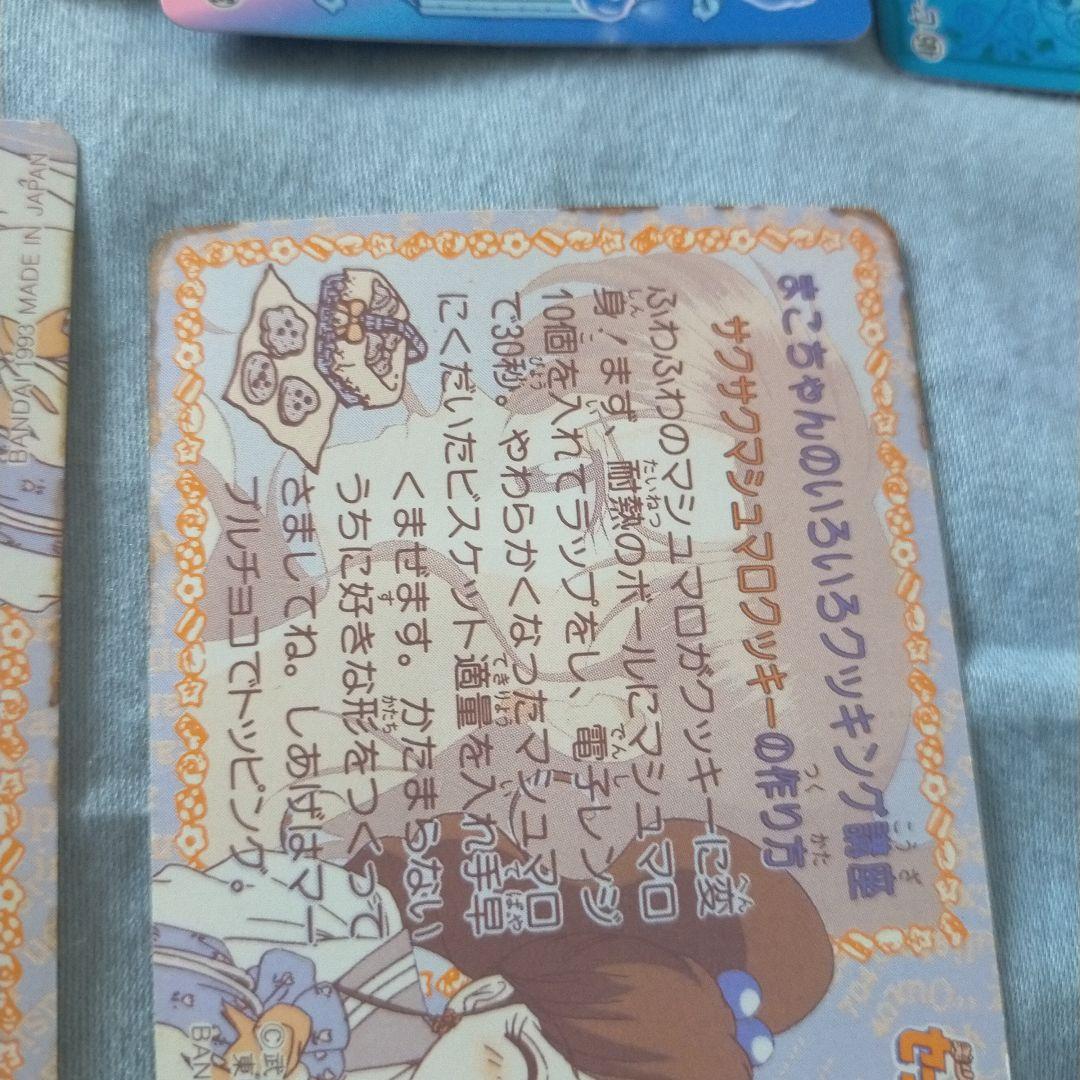 まこちゃんのいろいろクッキング講座
サクサクマシュマロクッキーの作り方
ふわふわのマシュマロがクッキーに変
身！まず、耐熱のボールにマシュマロ
10個を入れてラップをし、電子レンジ
で30秒。やわらかくなったマシュマロ
にくだいたビスケット適量を入れ手早
くまぜます。かたまらない
うちに好きな形をつくって
さましてね。しあげはマー
ブルチョコでトッピング。
©武
東
BAN
セー
BANDAI 1993 MADE IN JAPAN